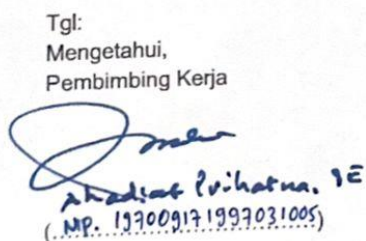 Tgl:
Mengetahui,
Pembimbing Kerja
Prihatna, SE
(NIP. 197009171997031005)